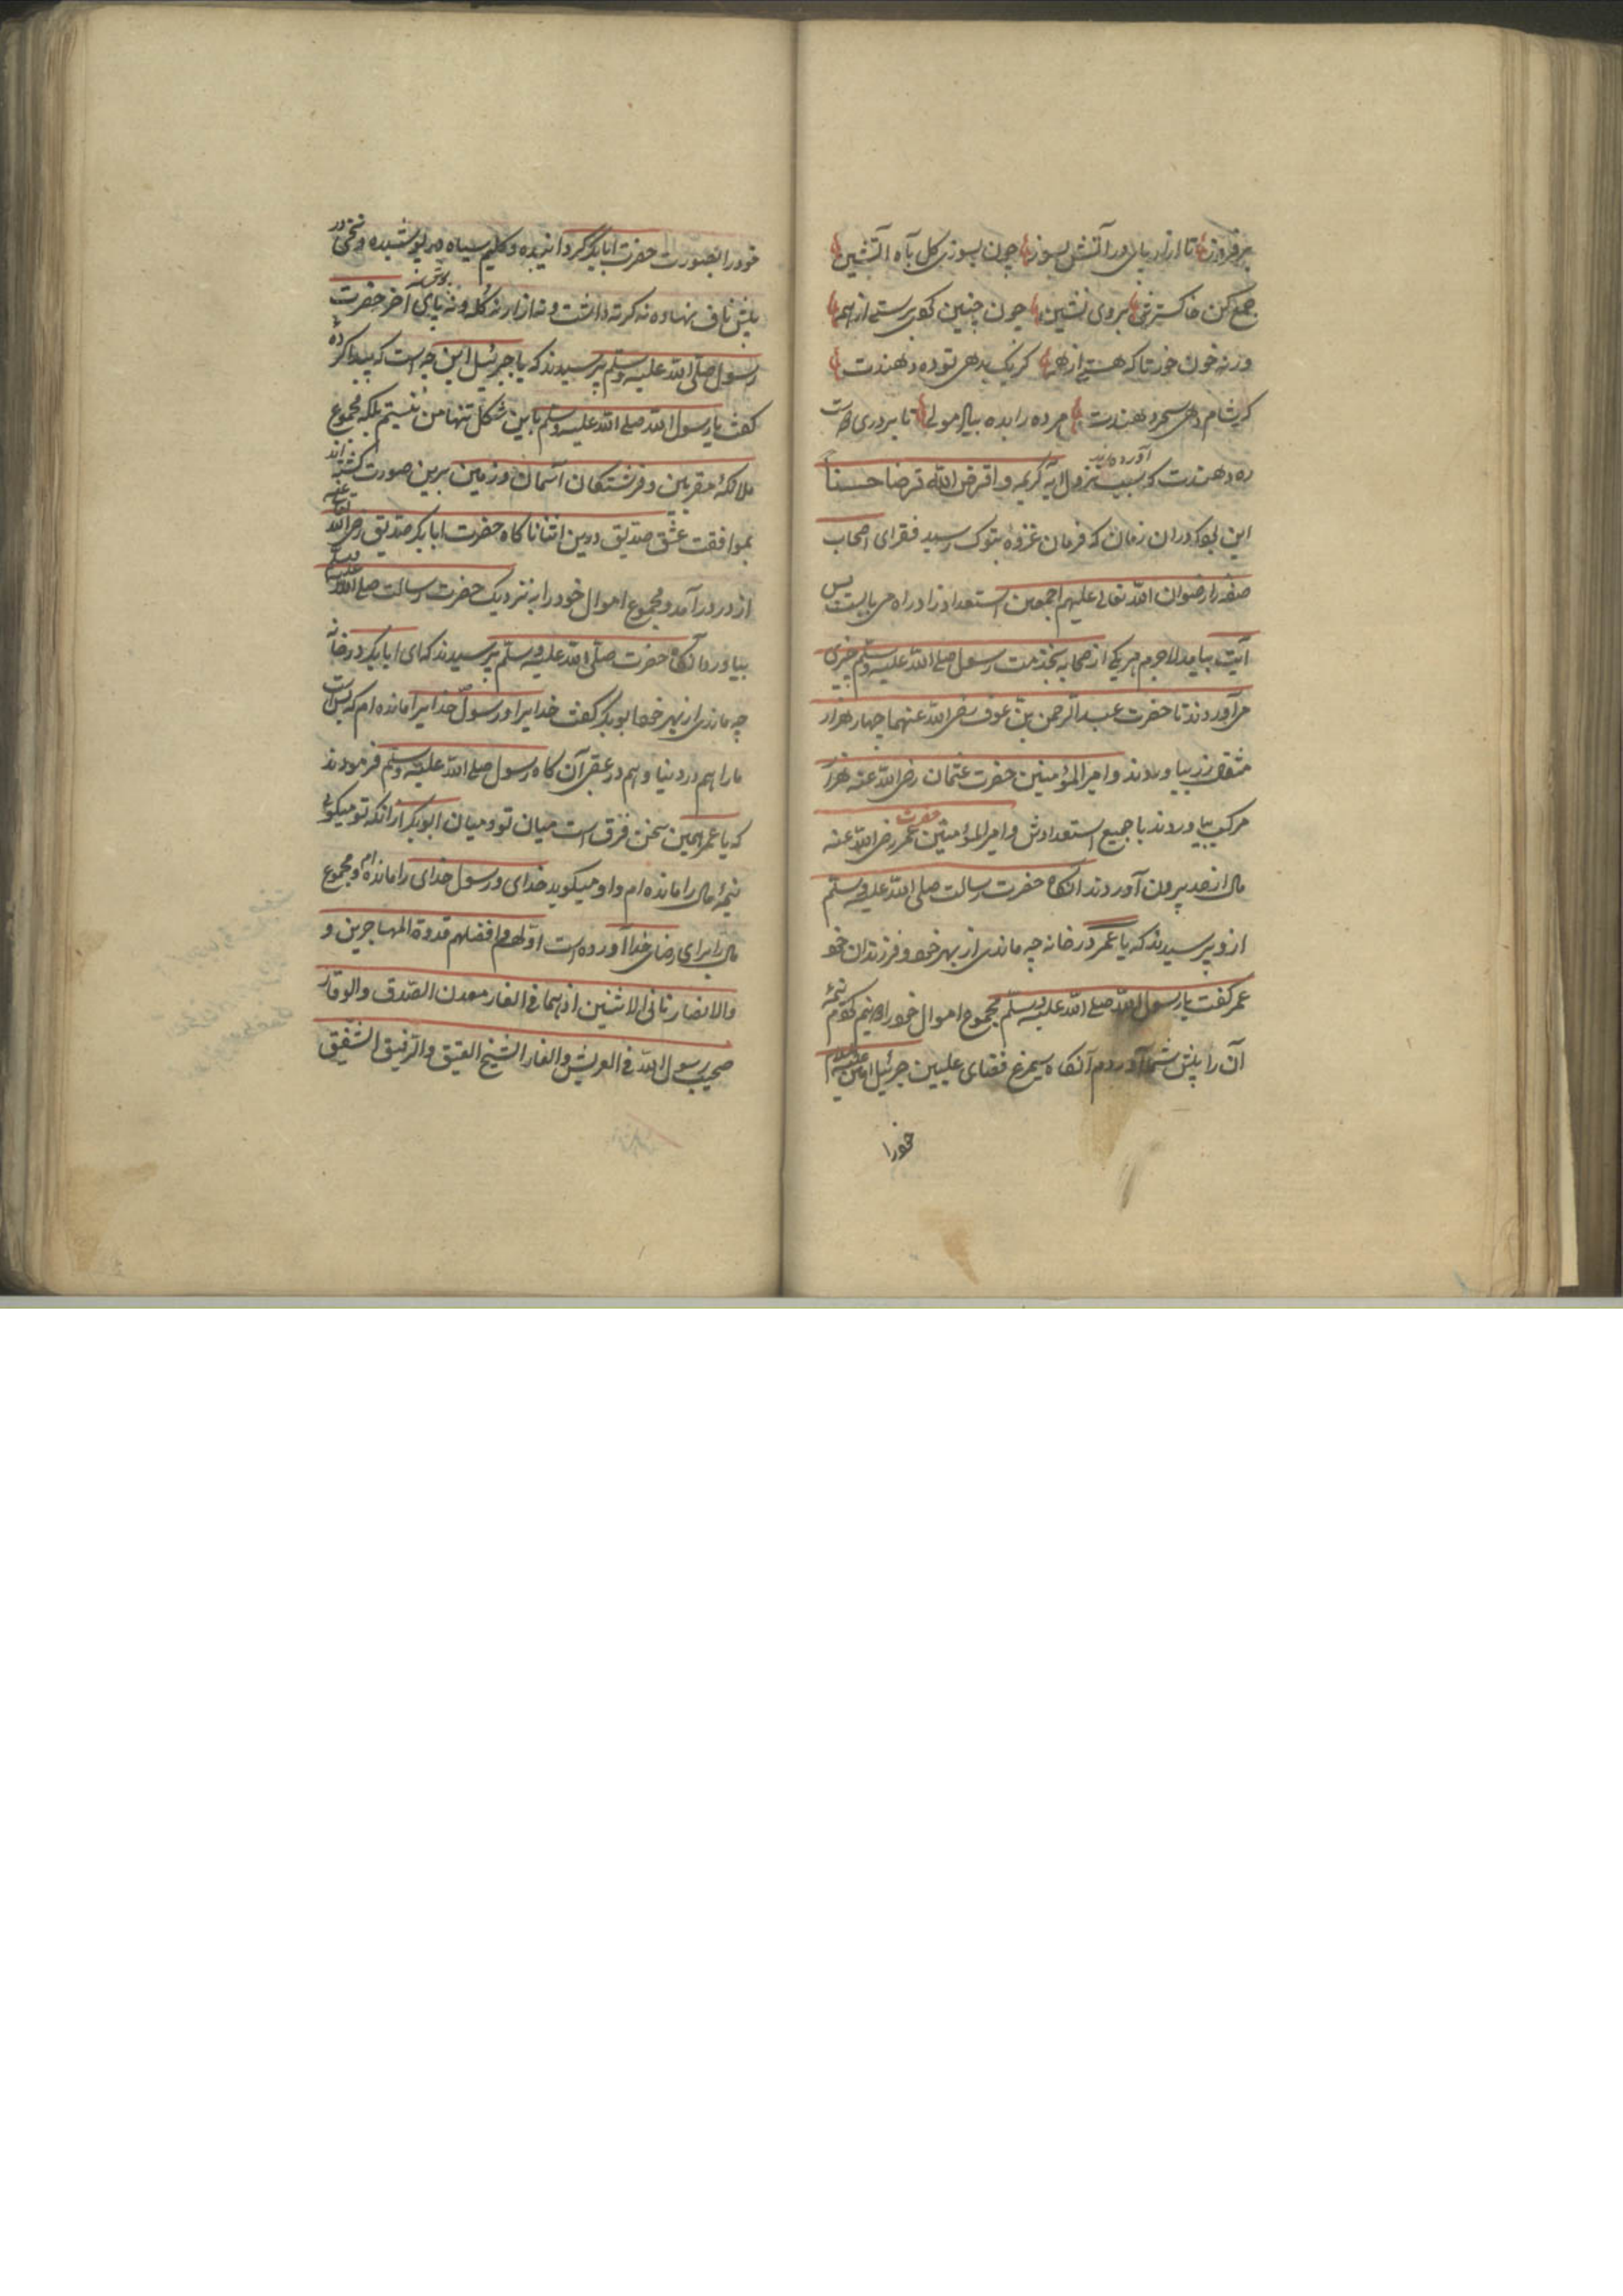 برفروز تا ازار پای در آتش بسوز چون بسوزی کل بآه آتشین
جمع کن خاکسترش بروی نشین چون چنین کوی برستی از همه
ورنه خون خور تا که هستی از همه کر یک بدهی تو ده دهندت
کر شام دهی سحر دهندت هر ده را بده ببال مولی تا بر دری
ره دهندت که سبب نزول آیه کریمه و اقرض الله قرضا حسنا آورده اند
این بود که در ان زمان که فرمان غزوۀ تبوک رسید فقرای اصحاب
صفه را رضوان الله تعالی علیهم اجمعین استعداد زاد راه می بایست پس
آیت بیامد لاجرم هر یکی از صحابه بخدمت رسول صلی الله علیه وسلم چیزی
می آوردند تا حضرت عبد الرحمن بن عوف رضی الله عنهما چهار هزار
مثقال زر بیاوردند و امیر المؤمنین حضرت عثمان رضی الله عنه هزار
مرکب بیاوردند با جمیع استعدادش و امیر المؤمنین حضرت عمر رضی الله عنه
مال از حد بیرون آوردند انکاه حضرت رسالت صلی الله علیه وسلم
ازو پرسیدند که یا عمر در خانه چه ماندی از بهر خود و فرزندان خود
عمر کفت یا رسول الله صلی الله علیه وسلم مجموع اموال خود را دو نیم کردم نیمۀ
آن را پیش شما آوردم آنکاه سیمرغ فضای علیین جبرئیل امین علیه السلام
خود را
خود را بصورت حضرت ابابکر کردانیده و کلیم سیاه در پوشیده و شخی در
پیش ناف نهاده نه کرته داشت و نه ازار نه کله و نه پای پوش آخر حضرت
رسول صلی الله علیه وسلم پرسیدند که یا جبرئیل این چه است که پیدا کردۀ
کفت یا رسول الله صلی الله علیه وسلم باین شکل تنها من نیستم بلکه مجموع
ملائکۀ مقربین و فرشتکان آسمان و زمین برین صورت کشته اند
بموافقت عشق صدیق درین اثنا ناکاه حضرت ابابکر صدیق رضی الله تعالی عنه
از در درآمد و مجموع اموال خود را به نزدیک حضرت رسالت صلی الله علیه وسلم
بیاورد آنکاه حضرت صلی الله علیه وسلم پرسیدند که ای ابابکر در خانه
چه ماندی از بهر خود ابوبکر کفت خدایرا و رسول خدایرا مانده ام که بس است
مارا هم در دنیا و هم در عقبی آن کاه رسول صلی الله علیه وسلم فرمودند
که یا عمر همین سخن فرق است میان تو و میان ابوبکر ازانکه تو میکوئی
نیمۀ مال را مانده ام و او میکوید خدای و رسول خدای را مانده ام و مجموع
مال را برای رضای خدا آورده است اولهم و افضلهم قدوة المهاجرین و
والانصار ثانی الاثنین اذ هما فی الغار معدن الصدق والوقار
صحیب رسول الله فی العریش والغار الشیخ العتیق والرفیق الشفیق